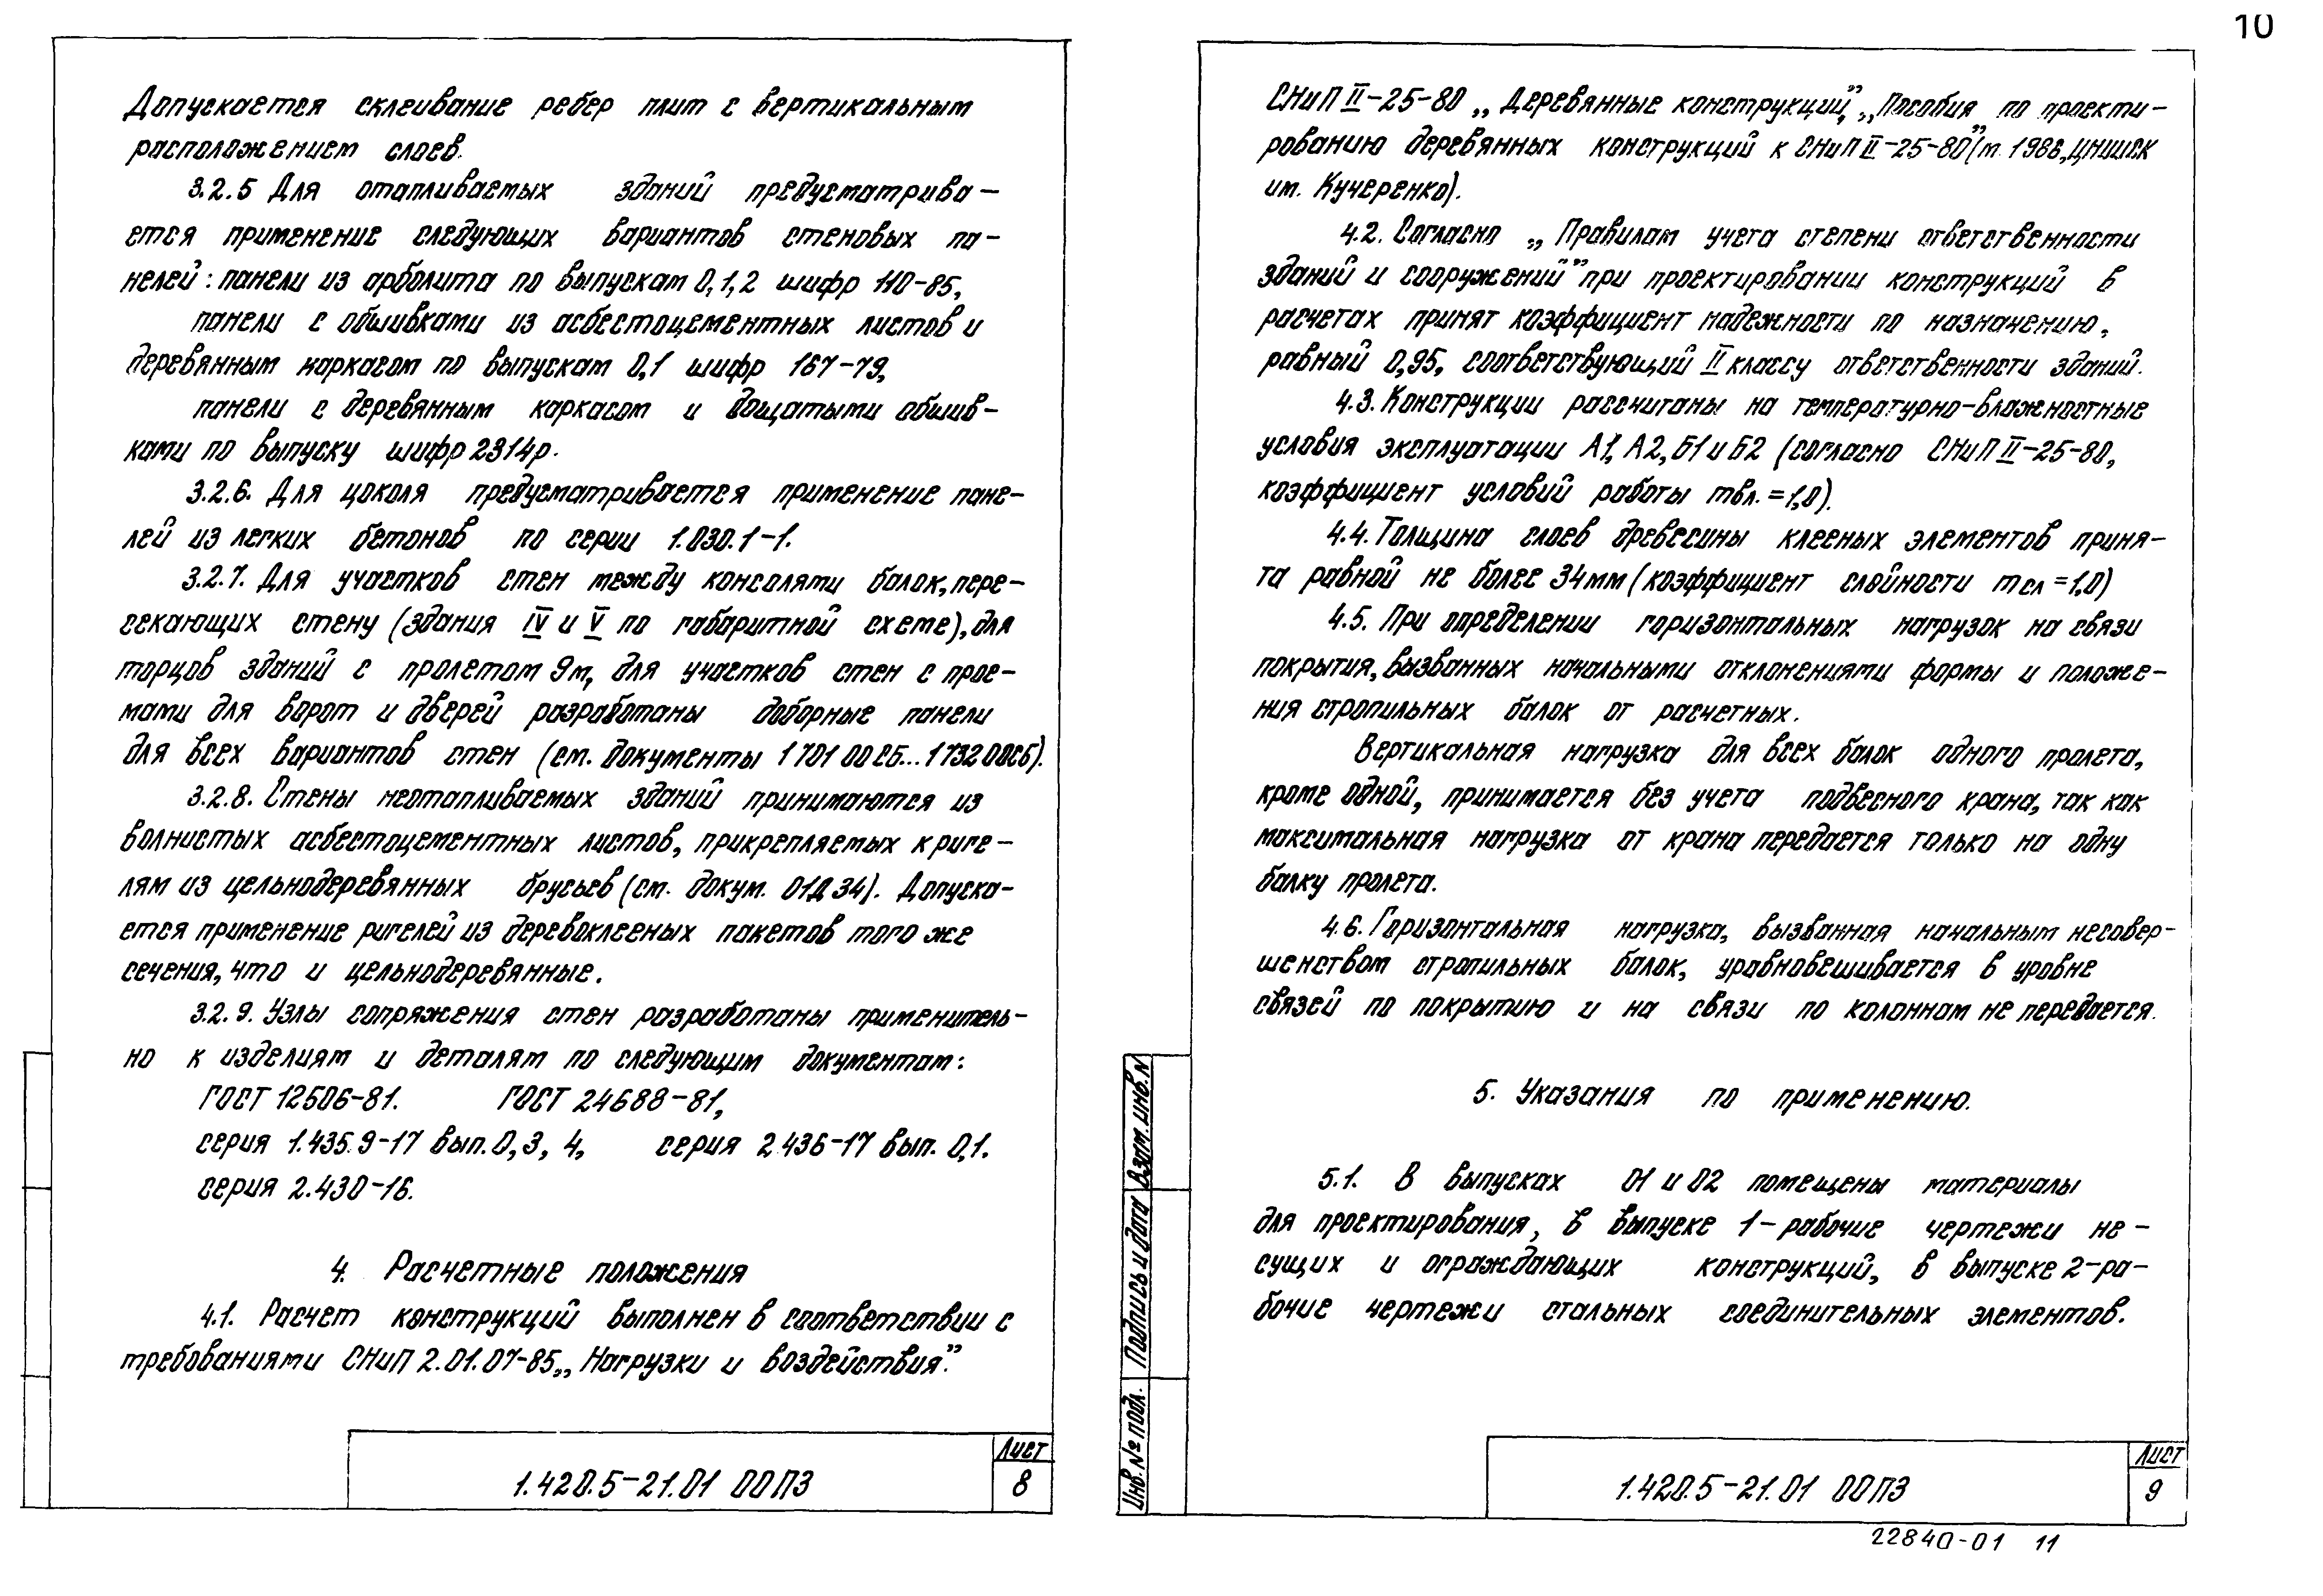 10
Допускается склеивание ребер плит с вертикальным
расположением слоев.
3.2.5 Для отапливаемых зданий предусматрива-
ется применение следующих вариантов стеновых па-
нелей: панели из арболита по выпускам 0,1,2 шифр 110-85,
панели с обшивками из асбестоцементных листов и
деревянным каркасом по выпускам 0,1 шифр 167-79,
панели с деревянным каркасом и дощатыми обшив-
ками по выпуску шифр 2314р.
3.2.6. Для цоколя предусматривается применение пане-
лей из легких бетонов по серии 1.030.1-1.
3.2.7. Для участков стен между консолями балок, пере-
секающих стену (здания IV и V по габаритной схеме), для
торцов зданий с пролетом 9м, для участков стен с прое-
мами для ворот и дверей разработаны доборные панели
для всех вариантов стен (см. документы 1701 00СБ...1732 00СБ).
3.2.8. Стены неотапливаемых зданий принимаются из
волнистых асбестоцементных листов, прикрепляемых к риге-
лям из цельнодеревянных брусьев (см. докум. 01Д34). Допуска-
ется применение ригелей из деревоклееных пакетов того же
сечения, что и цельнодеревянные.
3.2.9. Узлы сопряжения стен разработаны применитель-
но к изделиям и деталям по следующим документам:
ГОСТ 12506-81. ГОСТ 24688-81,
серия 1.435.9-17 вып. 0,3, 4, серия 2.436-17 вып. 0,1.
серия 2.430-16.
4. Расчетные положения
4.1. Расчет конструкций выполнен в соответствии с
требованиями СНиП 2.01.07-85 „Нагрузки и воздействия".
1.420.5-21.01 00ПЗ
Лист
8
СНиП II-25-80 „Деревянные конструкций", „Пособия по проекти-
рованию деревянных конструкций к СНиП II-25-80" (м. 1986, ЦНИИСК
им. Кучеренко).
4.2. Согласно „Правилам учета степени ответственности
зданий и сооружений" при проектировании конструкций в
расчетах принят коэффициент надежности по назначению,
равный 0,95, соответствующий II классу ответственности зданий.
4.3. Конструкции рассчитаны на температурно-влажностные
условия эксплуатации А1, А2, Б1 и Б2 (согласно СНиП II-25-80,
коэффициент условий работы mвл.=1,0).
4.4. Толщина слоев древесины клееных элементов приня-
та равной не более 34мм (коэффициент слойности mсл=1,0)
4.5. При определении горизонтальных нагрузок на связи
покрытия, вызванных начальными отклонениями формы и положе-
ния стропильных балок от расчетных.
Вертикальная нагрузка для всех балок одного пролета,
кроме одной, принимается без учета подвесного крана, так как
максимальная нагрузка от крана передается только на одну
балку пролета.
4.6. Горизонтальная нагрузка, вызванная начальным несовер-
шенством стропильных балок, уравновешивается в уровне
связей по покрытию и на связи по колоннам не передается.
5. Указания по применению.
5.1. В выпусках 01 и 02 помещены материалы
для проектирования, в выпуске 1-рабочие чертежи не-
сущих и ограждающих конструкций, в выпуске 2-ра-
бочие чертежи стальных соединительных элементов.
Взам. инв. N
Подпись и дата
Инв. № подл.
1.420.5-21.01 00ПЗ
Лист
9
22840-01 11